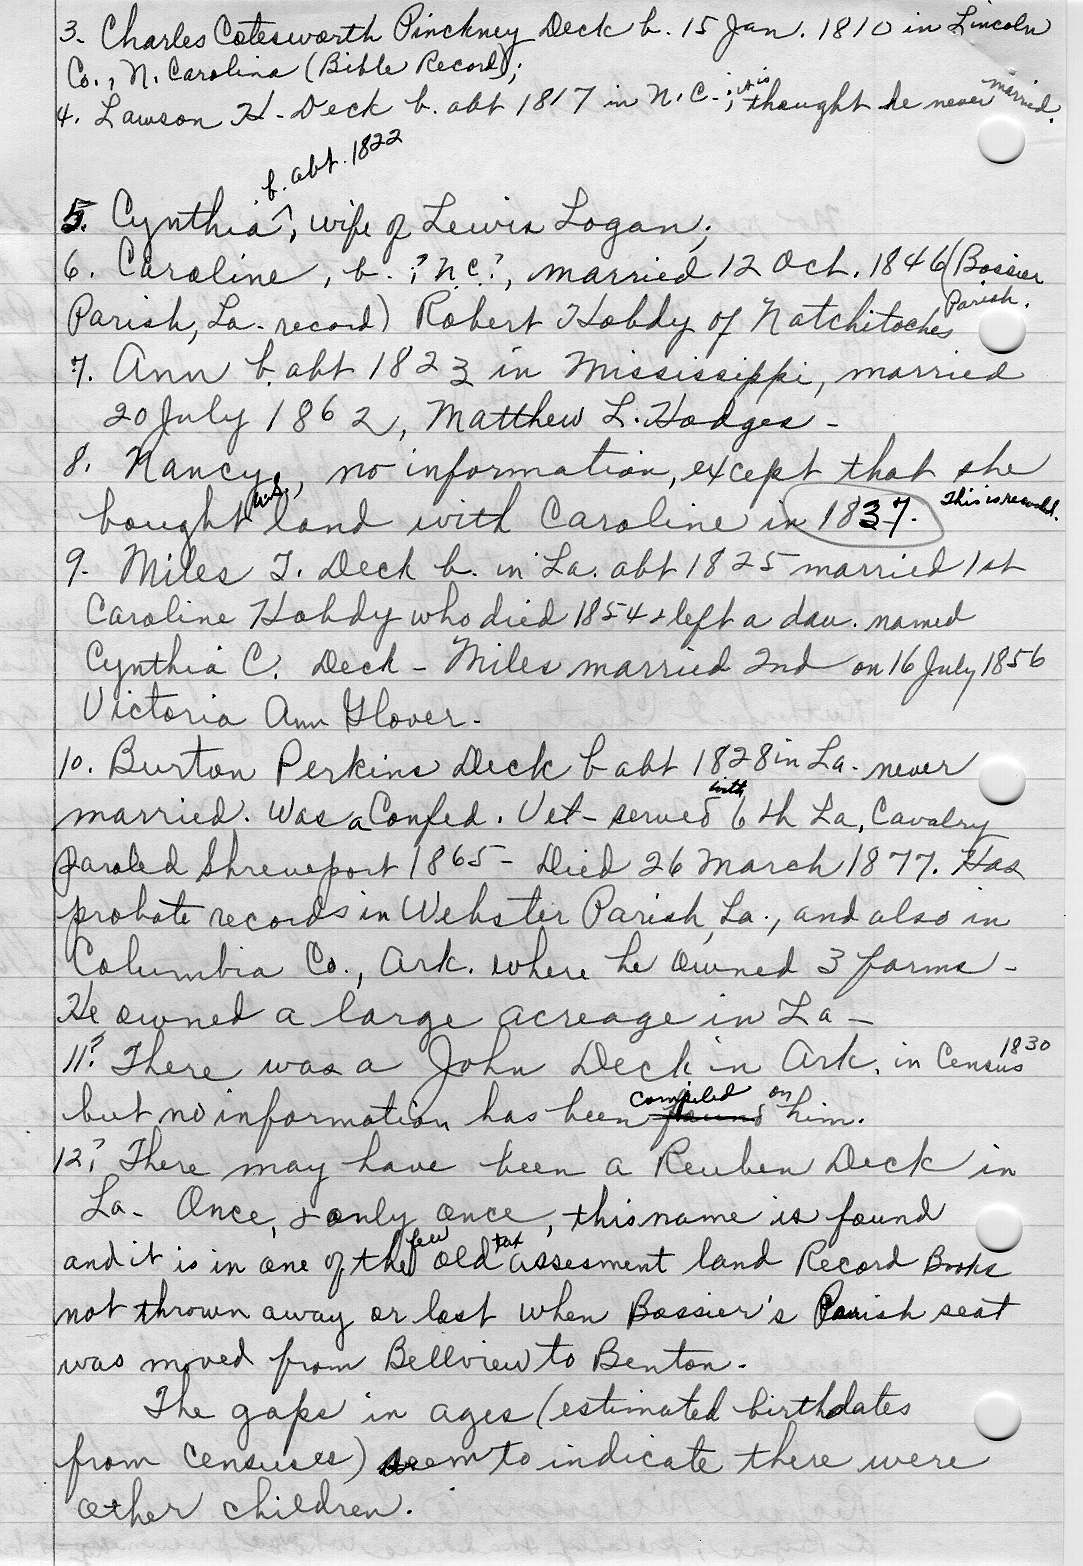 3. Charles Cotesworth Pinckney Deck b. 15 Jan. 1810 in Lincoln
Co., N. Carolina (Bible Record);
4. Lawson H. Deck b. abt 1817 in N.C.; it is thought he never married.
b. abt. 1822
5. Cynthia ^, wife of Lewis Logan;
6. Caroline, b. ? N.C.?, married 12 Oct. 1846 (Bossier
Parish, La. record) Robert Hobdy of Natchitoches Parish.
7. Ann b. abt 1823 in Mississippi, married
20 July 1862, Matthew L. Hodges -
8. Nancy, no information, except that she
bought land with Caroline in 1837. This is recorded.
9. Miles T. Deck b. in La. abt 1825 married 1st
Caroline Hobdy who died 1854 & left a dau. named
Cynthia C. Deck - Miles married 2nd on 16 July 1856
Victoria Ann Glover -
10. Burton Perkins Deck b abt 1828 in La - never
married. Was a Confed. Vet - served with 6th La. Cavalry
paroled Shreveport 1865 - Died 26 March 1877. Has
probate records in Webster Parish, La., and also in
Columbia Co., Ark. where he owned 3 farms -
He owned a large acreage in La -
11? There was a John Deck in Ark. in 1830 Census
but no information has been compiled on him.
12? There may have been a Reuben Deck in
La - Once, & only once, this name is found
and it is in one of the few old tax assesment land Record Books
not thrown away or lost when Bossier's Parish seat
was moved from Bellview to Benton.
The gaps in ages (estimated birthdates
from censuses) seem to indicate there were
other children.